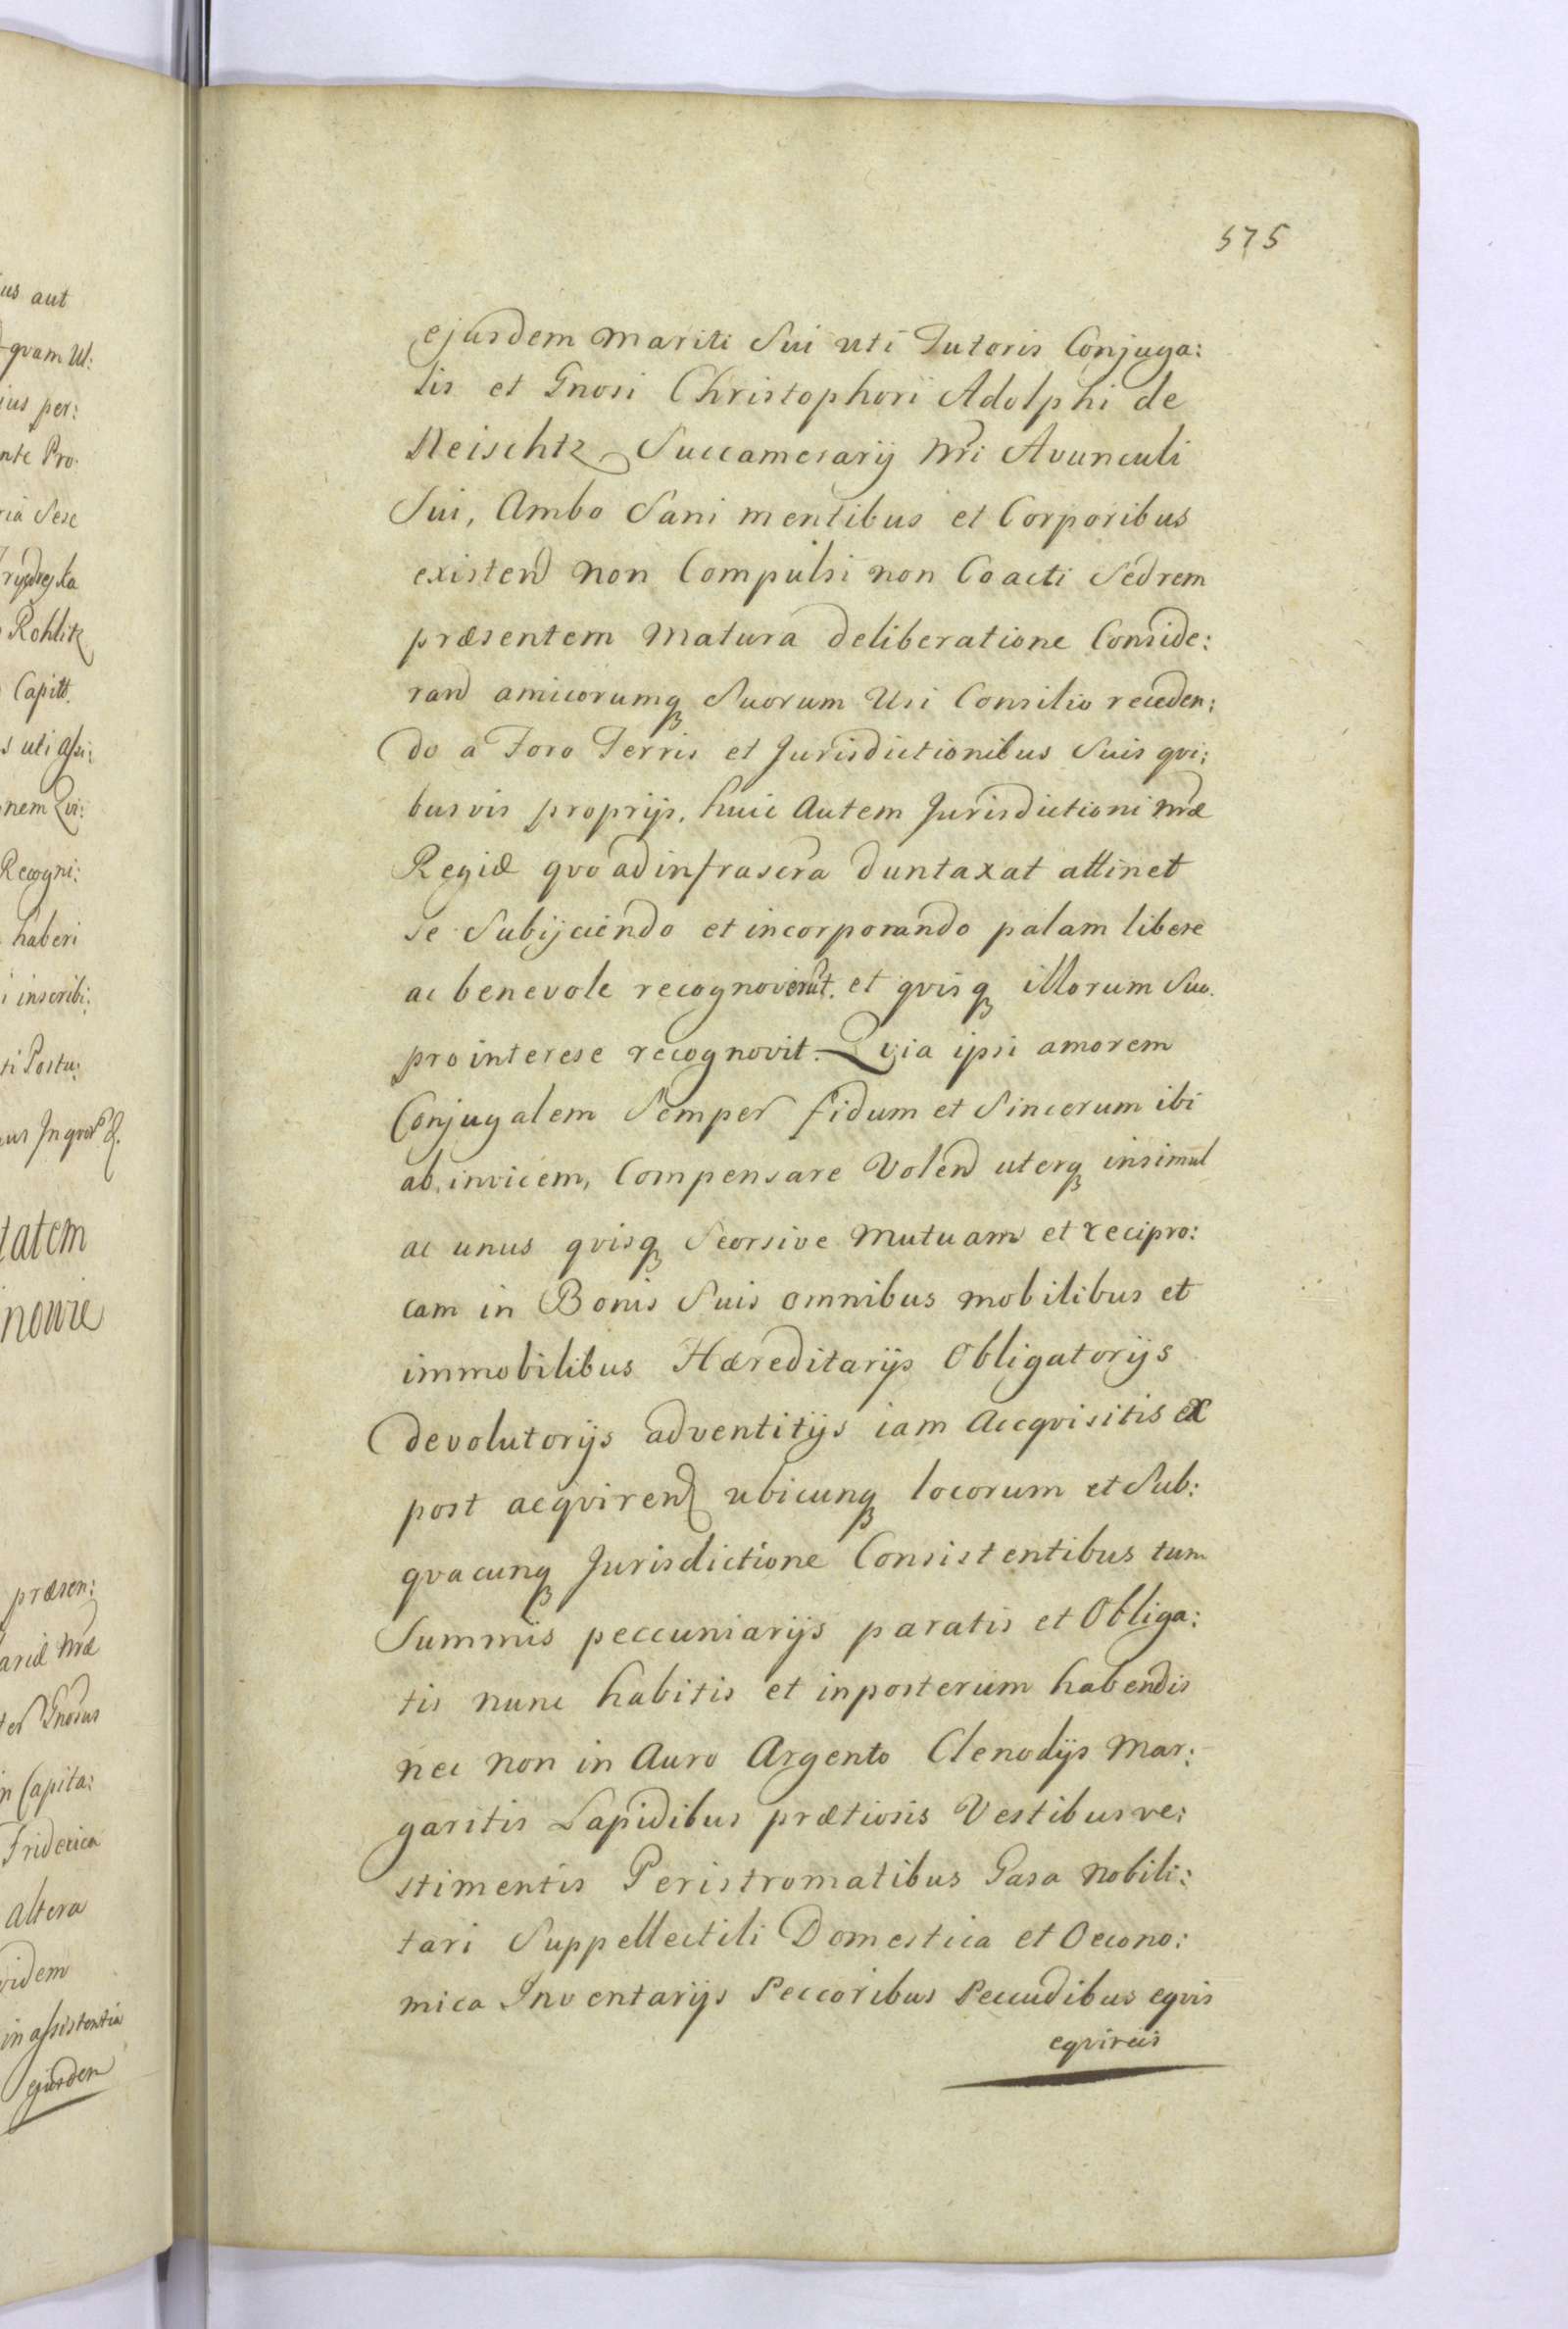 575
ejusdem Mariti Sui uti Tutoris Conjuga:
lis et Gnosi Christophori Adolphi de
Succamerarij Nri Avunculi
Sui, Ambo Sani mentibus et Corporibus
existend non Compulsi non Coacti Sed rem
præsentem Matura deliberatione Conside:
rand amicorumq Suorum Usi Consilio receden:
do a Foro Terris et Jurisdictionibus Suis qvi:
busvis proprijs, huic Autem Jurisdictioni Nræ
Regiæ qvo ad infrascra duntaxat attinet
se Subijciendo et incorporando palam libere
ac benevole recognoverut. et qvisq illorum Suo.
pro interese recognovit. Qvia ipsi amorem
Conjugalem Semper fidum et Sincerum ibi
ab invicem, Compensare Volend uterq insimul
ac unus qvisq Seorsive Mutuam et recipro:
cam in Bonis Suis omnibus mobilibus et
immobilibus Hæreditarijs Obligatorijs
devolutorijs adventitijs iam Accqvisitis ex
post acqvirend ubicunq locorum et Sub:
qvacunq Jurisdictione Consistentibus tum
Summis peccuniarijs paratis et Obliga:
tis nunc habitis et inposterum habendis
nec non in Auro Argento Clenodijs Mar:
garitis Lapidibus prætiosis Vestibus ve:
stimentis Peristromatibus Gasa Nobili:
tari Suppellectili Domestica et Oecono:
mica Inventarijs Peccoribus Pecudibus eqvis
eqvireis
us aut
qvam Ul:
ius per:
nte Pro:
ria Sese
Rohlitz
Capitt.
s uti Assi:
nem Qvi:
Recogni:
haberi
i inscribi:
ti Postu:
tatem
nowie
præsen:
ariæ Nræ
ter Gnosus
in Capita:
Friderica
altera
videm
in assistentia
ejusdem